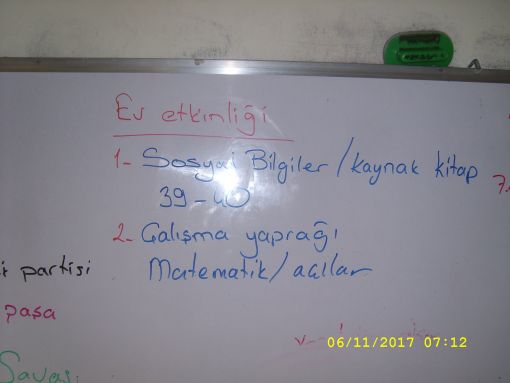 Ev etkinliği
1- Sosyal Bilgiler / kaynak kitap
39-40
2- Çalışma yaprağı
Matematik / açılar
partisi
paşa
Savaşı
06/11/2017 07:12